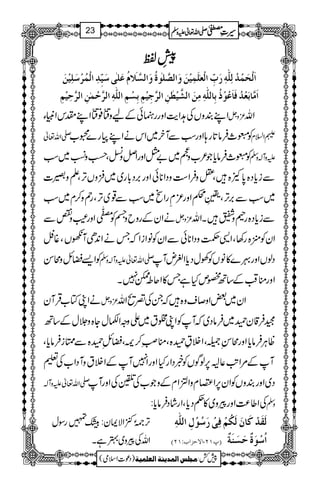 سیرتِ مصطفی صلی اللہ تعالیٰ علیہ وسلم 23
پیشِ لفظ
اَلْحَمْدُ لِلّٰهِ رَبِّ الْعٰلَمِیْنَ وَالصَّلٰوةُ وَالسَّلَامُ عَلٰی سَیِّدِ الْمُرْسَلِیْنَ
اَمَّابَعْدُ فَاَعُوْذُ بِاللّٰهِ مِنَ الشَّیْطٰنِ الرَّجِیْمِ بِسْمِ اللّٰهِ الرَّحْمٰنِ الرَّحِیْمِ
اللہ عزوجل اپنے بندوں کی ہدایت اور رہنمائی کے لیے وقتاً فوقتاً اپنے مقدس انبیاء
علیہم السلام کو مبعوث فرماتا رہا اور سب سے آخر میں اس نے اپنے پیارے محبوب صلی اللہ تعالیٰ
علیہ واٰلہ وسلم کو مبعوث فرمایا جو عرب و عجم میں بے مثل اور اصل و نسل، حسب و نسب میں سب
سے زیادہ پاکیزہ ہیں، عقل و فراست و دانائی اور بردباری میں فزوں تر، علم و بصیرت
میں سب سے برتر، یقین محکم اور عزم راسخ میں سب سے قوی تر، رحم و کرم میں سب
سے زیادہ رحیم و شفیق ہیں۔ اللہ عزوجل نے ان کے روح و جسم کو مصفّٰی اور عیب و نقص سے
ان کو منزہ رکھا، ایسی حکمت و دانائی سے ان کو نوازا کہ جس نے اندھی آنکھوں، غافل
دلوں اور بہرے کانوں کو کھول دیا الغرض آپ صلی اللہ تعالیٰ علیہ واٰلہ وسلم کو ایسے فضائل و محاسن
اور مناقب کے ساتھ مخصوص کیا جس کا احاطہ ممکن نہیں۔
ان میں بعض اوصاف وہ ہیں کہ جن کی تصریح اللہ عزوجل نے اپنی کتاب قرآن
مجید فرقان حمید میں فرما دی کہ آپ کو اپنی مخلوق میں علی وجہ الکمال جاہ و جلال کے ساتھ
ظاہر فرمایا اور محاسنِ جمیلہ، اخلاقِ حمیدہ، مناصبِ کریمہ، فضائلِ حمیدہ سے ممتاز فرمایا،
آپ کے مراتبِ عالیہ پر لوگوں کو خبردار کیا اور انہیں آپ کے اخلاق و آداب کی تعلیم
دی اور بندوں کو ان پر اعتصام و التزام کے وجوب کی تلقین کی اور آپ صلی اللہ تعالیٰ علیہ واٰلہ
وسلم کی اطاعت اور پیروی کا حکم دیا، ارشاد فرمایا:
لَقَدْ كَانَ لَكُمْ فِیْ رَسُوْلِ اللّٰهِ ترجمۂ کنز الایمان: بیشک تمہیں رسول
اُسْوَةٌ حَسَنَةٌ (پ۲۱،الاحزاب:۲۱) اللہ کی پیروی بہتر ہے۔
پیش کش: مجلس المدینۃ العلمیۃ (دعوتِ اسلامی)